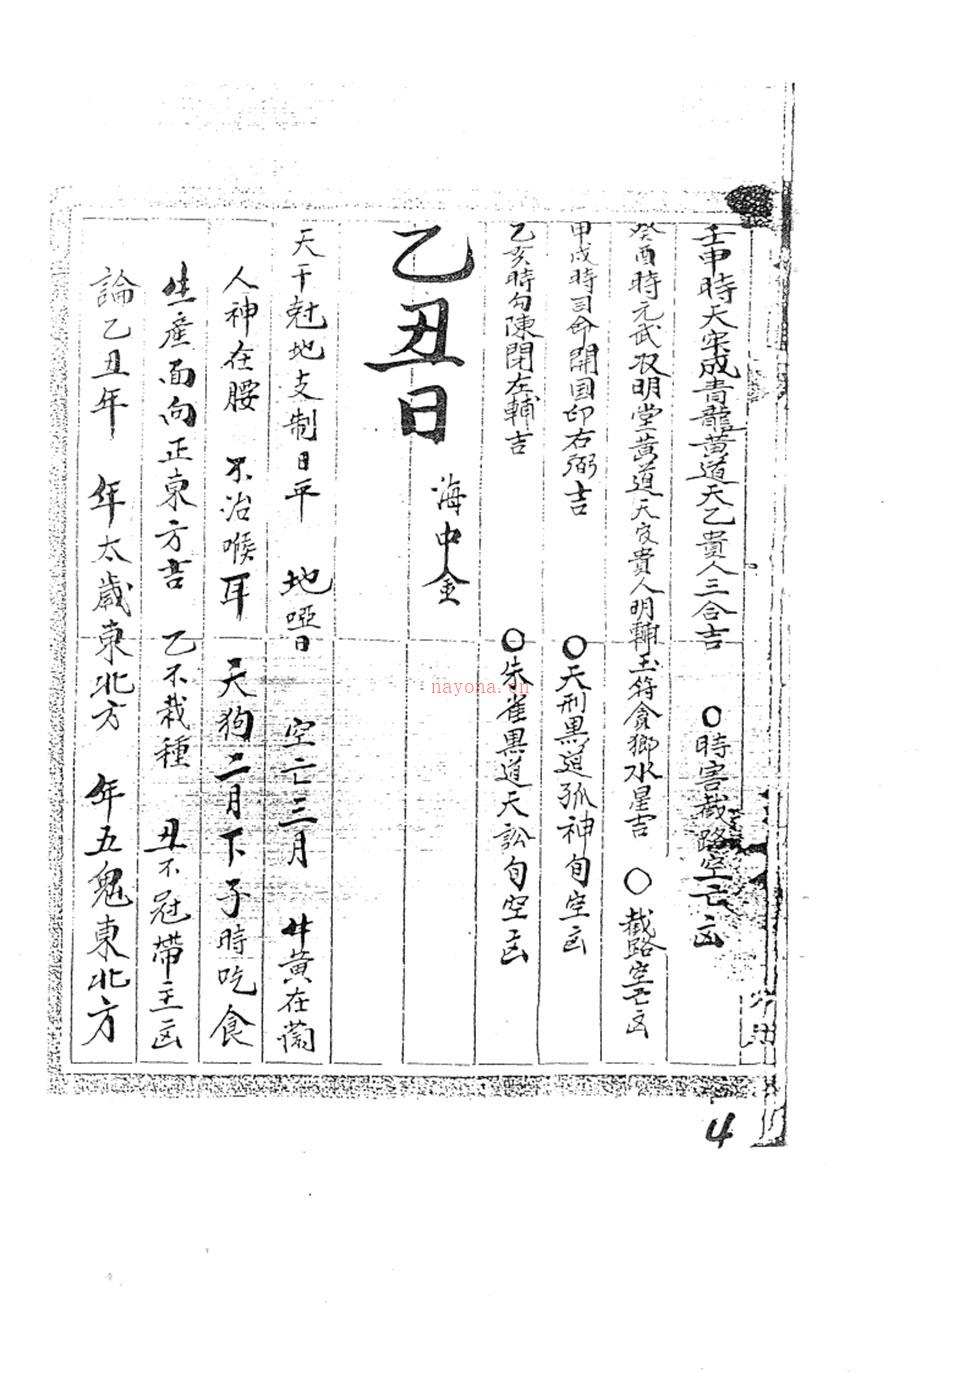 壬申時天牢成青龍黃道天乙貴人三合吉 ○時害截路空亡凶
癸酉時元武收明堂黃道天官貴人明輔玉符貪鄉水星吉 ○截路空亡凶
甲戌時司命開国印右弼吉 ○天刑黑道孤神旬空凶
乙亥時勾陳閉左輔吉 ○朱雀黑道天訟旬空凶
乙丑日 海中金
天干尅地支制日平 地啞日 空亡三月 牛黃在
人神在腰 不治喉耳 天狗二月下子時吃食
生產面向正東方吉 乙不栽種 丑不冠帶主凶
論乙丑年 年太歲東北方 年五鬼東北方
4
nayona.cn